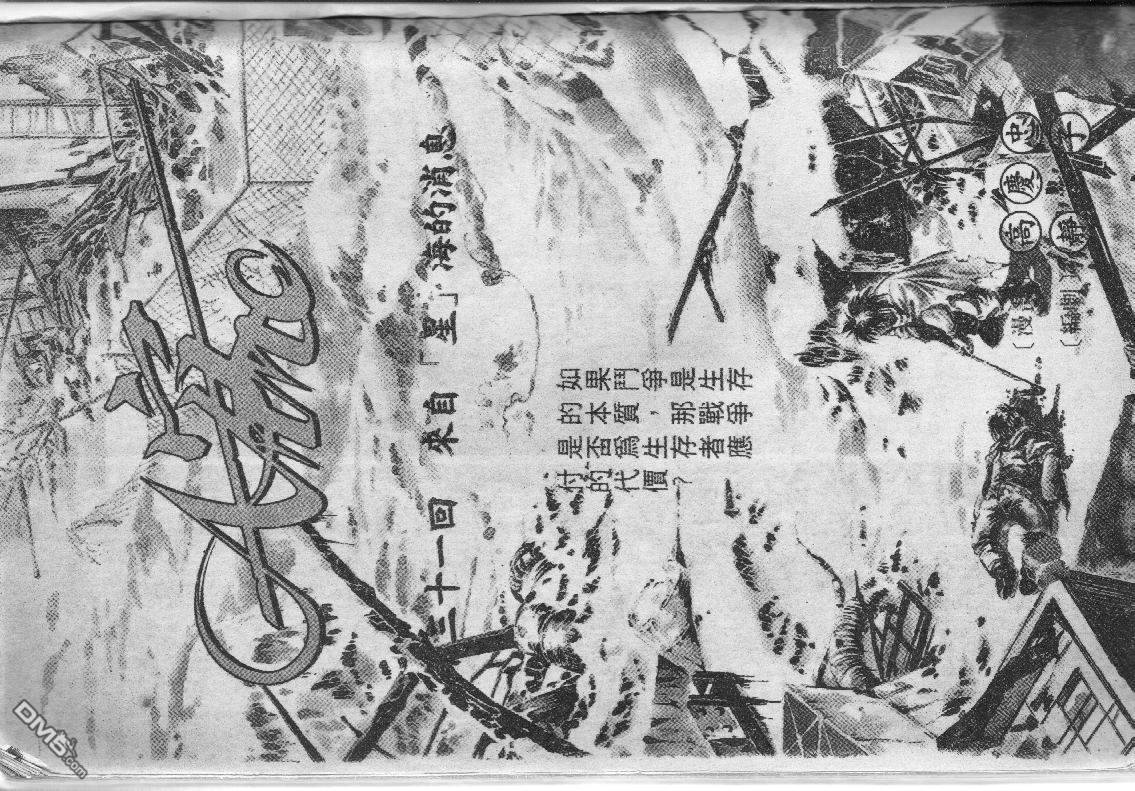 三十一回 來自「星」海的消息
如果鬥爭是生存
的本質，那戰爭
是否爲生存者應
付的代價？
〔漫 高慶忠
〔編劇〕靜子
DM5.com